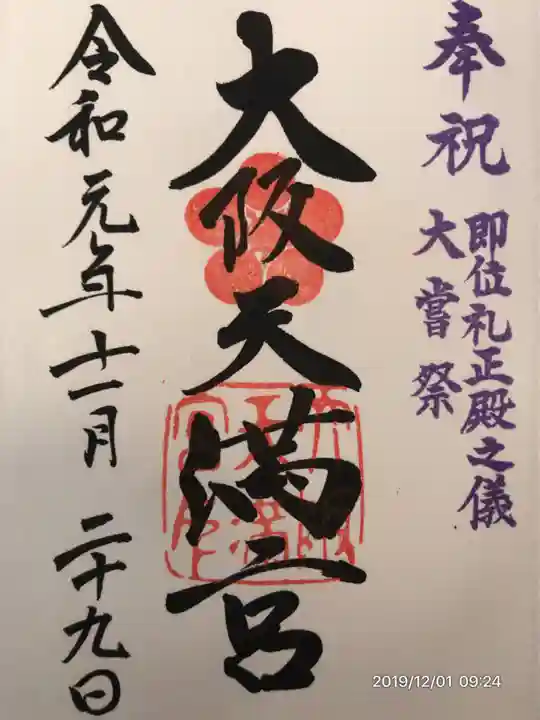 奉祝
即位礼正殿之儀
大嘗祭
大阪天満宮
令和元年十一月二十九日
2019/12/01 09:24